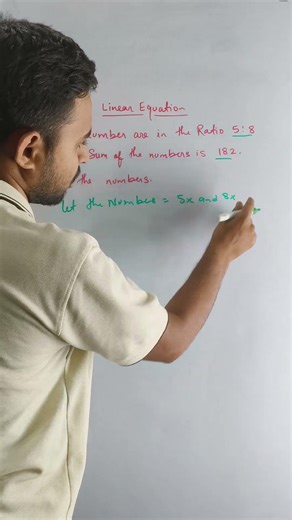 Linear Equation
umber are in the Ratio 5:8
Sum of the numbers is 182.
the numbers.
let the Numbers = 5x and 8x